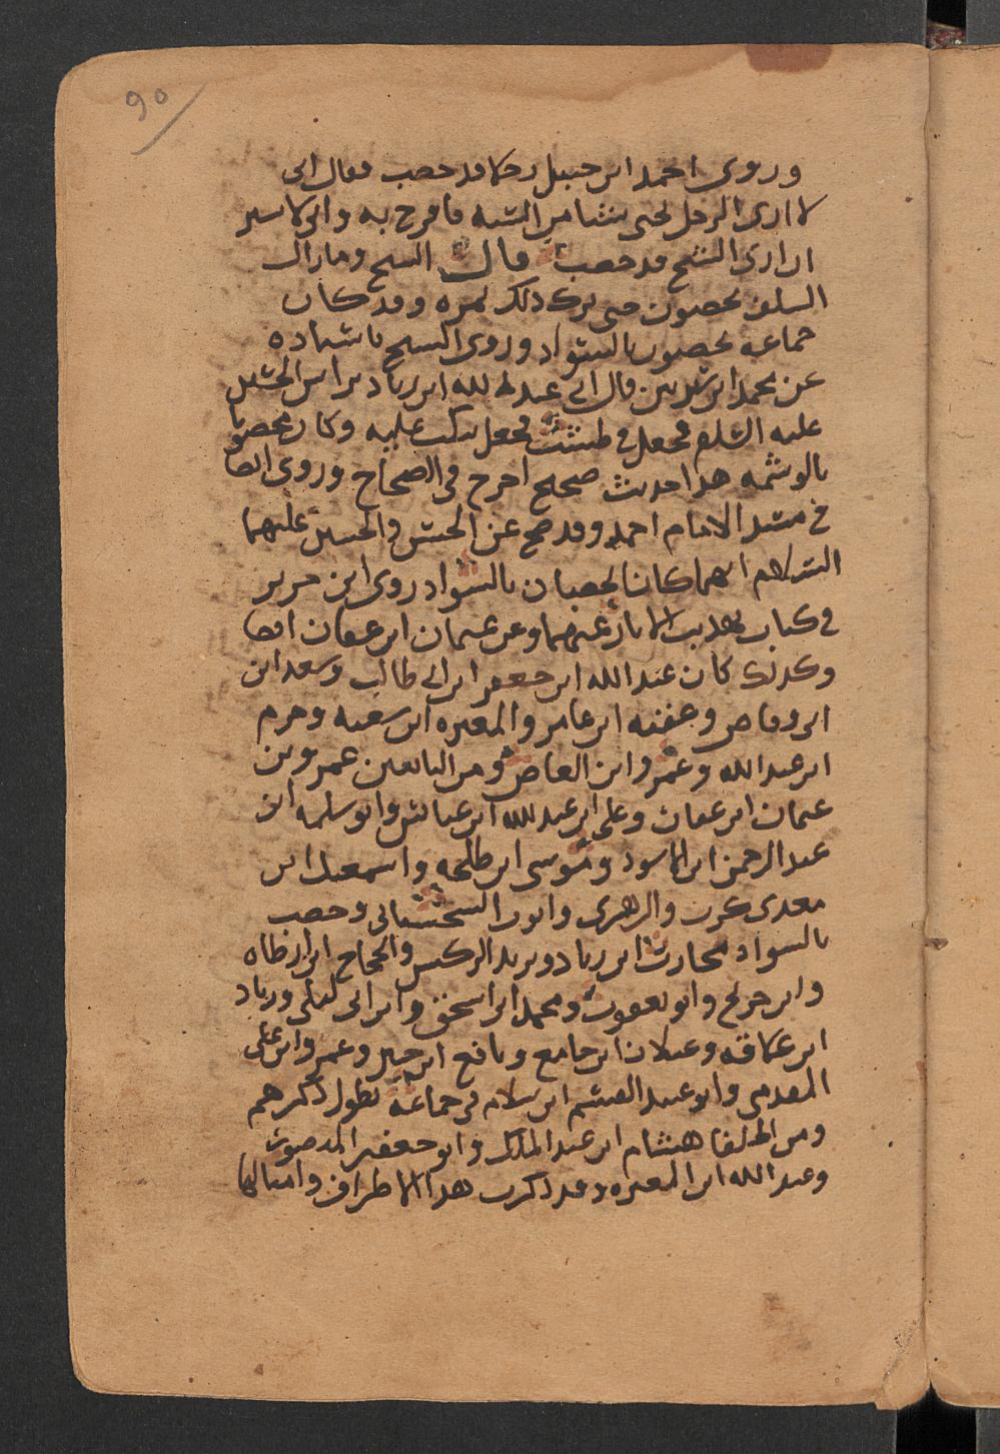 90
وروى احمد ابن حنبل رجلا قد خضب فقال انى
لا ارى الرجل يحيى شيئا من السنه فافرح به وانى لاسر
ان ارى الشيخ قد خضب قال الشيخ وما زال
السلف يخضبون حتى ترك ذلك لمره وقد كان
جماعه يخضبون بالسواد وروى الشيخ باسناده
عن محمد ابن سيرين قال اتى عبد الله ابن زياد براس الحسين
عليه السلم فجعل فى طست فجعل ينكت عليه وكان مخضوبا
بالوسمه هذا حديث صحيح اخرج فى الصحاح وروى ايضا
فى مسند الامام احمد وقد صح عن الحسن والحسين عليهما
السلام انهما كانا يخضبان بالسواد روى ابن جرير
فى كتاب تهذيب الاثار عنهما وعن عثمان ابن عفان ايضا
وكذلك كان عبد الله ابن جعفر ابن ابى طالب وسعد ابن
ابى وقاص وعقبه ابن عامر والمغيره ابن شعبه وجرير
ابن عبد الله وعمرو ابن العاص ومن التابعين عمرو بن
عثمان ابن عفان وعلى ابن عبد الله ابن عباس وابو سلمه ابن
عبد الرحمن ابن الاسود وموسى ابن طلحه واسمعيل ابن
معدى كرب والزهرى وايوب السختيانى وخضب
بالسواد محارب ابن زياد ويزيد الركس والحجاج ابن ارطاه
وابن جريج وابو يعقوب ومحمد ابن اسحق وابن ابى ليلى وزياد
ابن علاقه وغيلان ابن جامع ونافع ابن جبير وعمرو ابن على
المقدمى وابو عبيد القسم ابن سلام فى جماعه يطول ذكرهم
ومن الخلفا هشام ابن عبد الملك وابو جعفر المنصور
وعبد الله ابن المعتز وقد ذكرت هذا الاطراف وامثالها